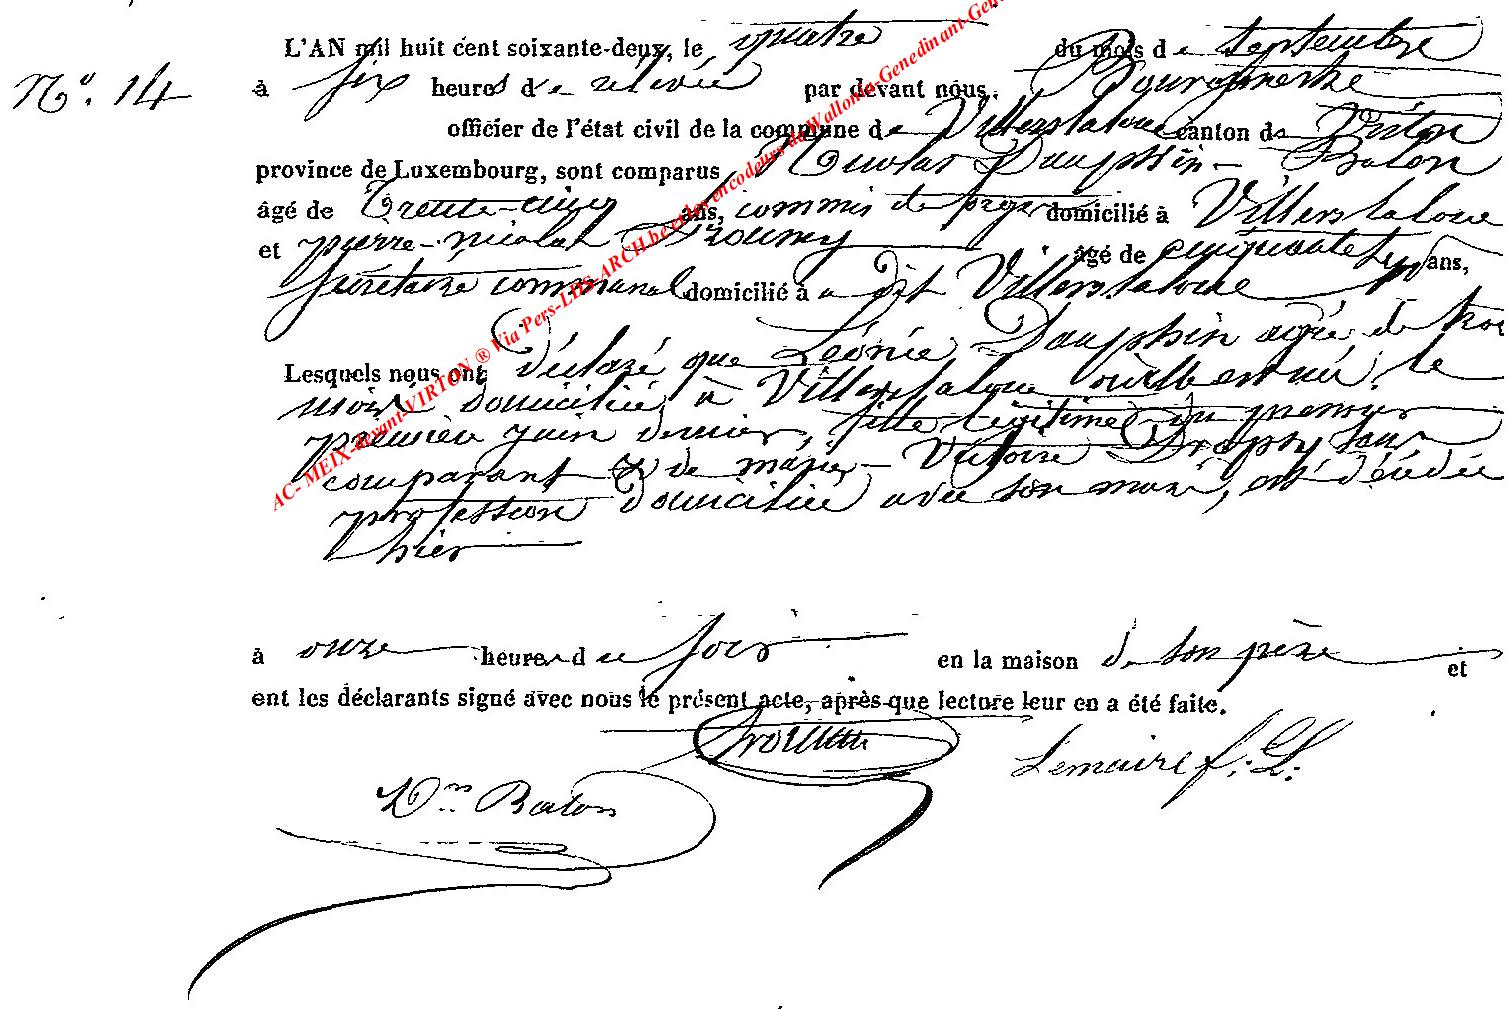 L'AN mil huit cent soixante-deux, le quatre du mois de septembre
N.° 14 à six heures de relevée par devant nous, Bourgmestre
officier de l'état civil de la commune de Villerslaloue canton de Virton
province de Luxembourg, sont comparus Nicolas Dauphin-Baton
âgé de Trente-cinq ans, commis de domicilié à Villerslaloue
et pierre-nicolas âgé de cinquante ans,
Sécretaire communal domicilié à a dit Villerslaloue
Lesquels nous ont Déclaré que Léonie Dauphin agée de trois
mois domiciliée à Villerslaloue où elle est né, le
premier juin dernier, fille légitime du premier
comparant & de marie-Victoire san
profession domiciliée avec son mari, est décédée
hier
à onze heures du soir en la maison de son père et
ont les déclarants signé avec nous le présent acte, après que lecture leur en a été faite.
Lemaire f.: L:
Dⁿ Baton
AC- MEIX-devant-VIRTON ® Via Pers-LDS-ARCH.be et les encodeurs du Wallonia-Genedinant-Gene